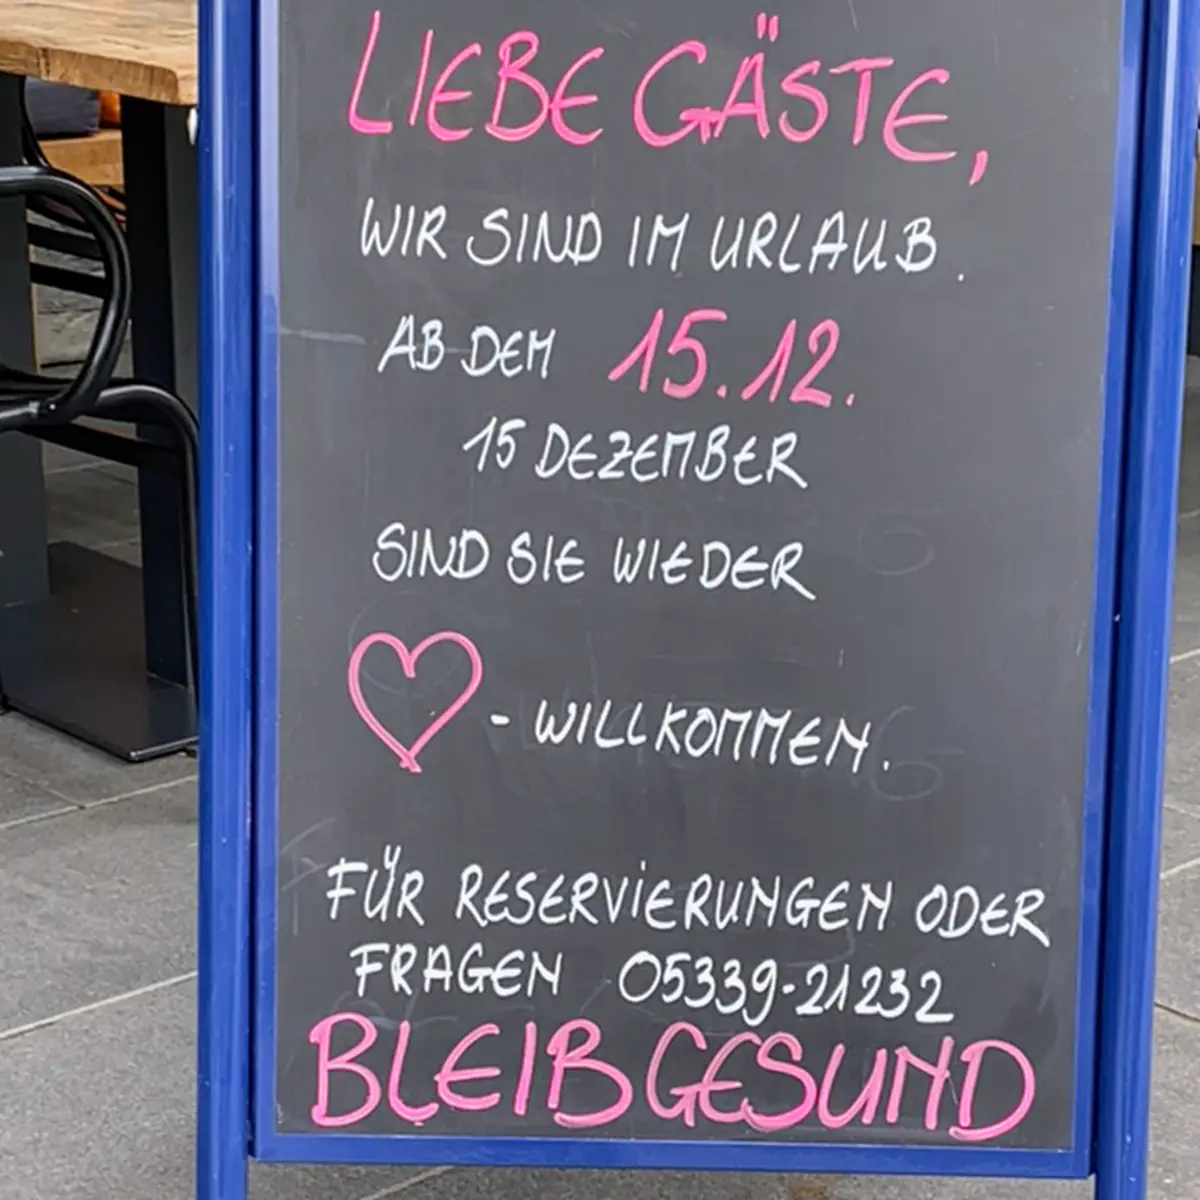 LIEBE GÄSTE,
WIR SIND IM URLAUB.
AB DEM 15.12.
15 DEZEMBER
SIND SIE WIEDER
- WILLKOMMEN.
FÜR RESERViERUNGEN ODER
FRAGEN 05339-21232
BLEIB GESUND